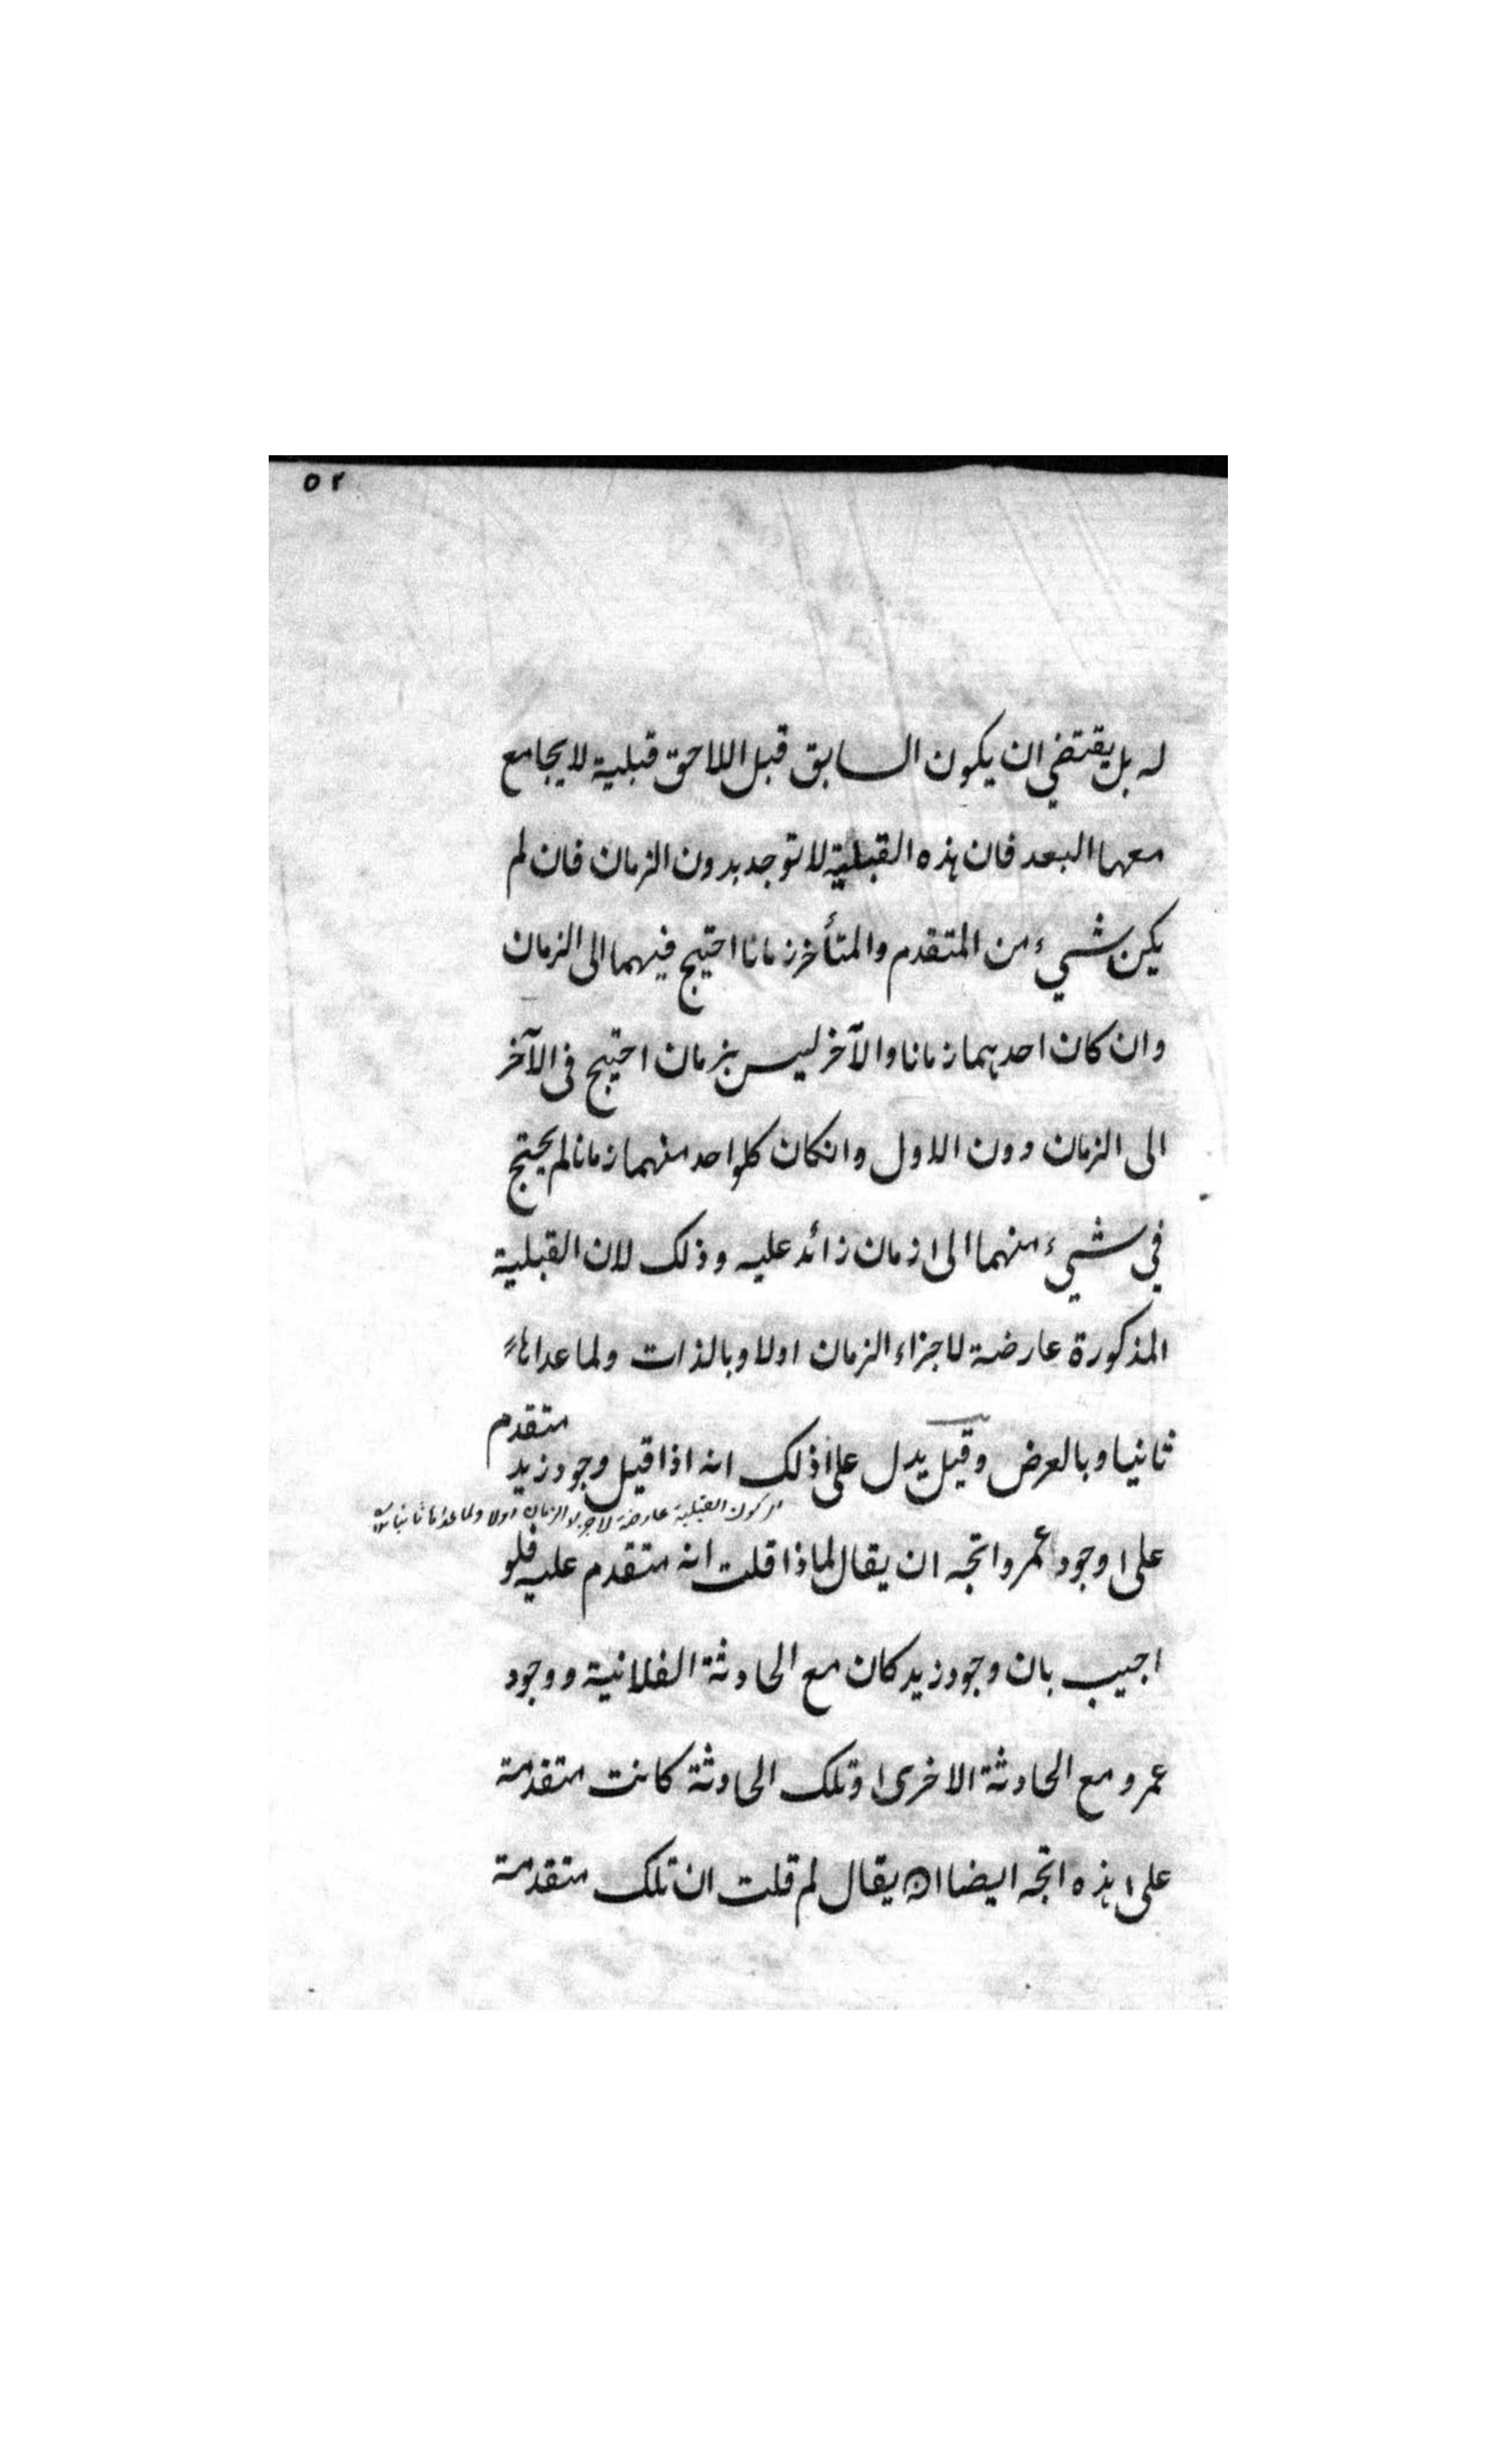 ٥٢
له بل يقتضي ان يكون السابق قبل اللاحق قبلية لا يجامع
معها البعد فان هذه القبلية لا توجد بدون الزمان فان لم
يكن شيء من المتقدم والمتأخر زمانا احتيج فيهما الى الزمان
وان كان احدهما زمانا والآخر ليس بزمان احتيج فى الآخر
الى الزمان دون الاول وانكان كلواحد منهما زمانا لم يحتج
في شيء منهما الى زمان زائد عليه وذلك لان القبلية
المذكورة عارضة لاجزاء الزمان اولا وبالذات ولما عداها
متقدم
ثانيا وبالعرض وقيل يدل على ذلك انه اذا قيل وجود زيد
كون القبلية عارضة لاجزاء الزمان اولا ولما عداها ثانيا
على وجود عمرو اتجه ان يقال لماذا قلت انه متقدم عليه فلو
اجيب بان وجود زيد كان مع الحادثة الفلانية ووجود
عمرو مع الحادثة الاخرى وتلك الحادثة كانت متقدمة
على هذه اتجه ايضا ان يقال لم قلت ان تلك متقدمة